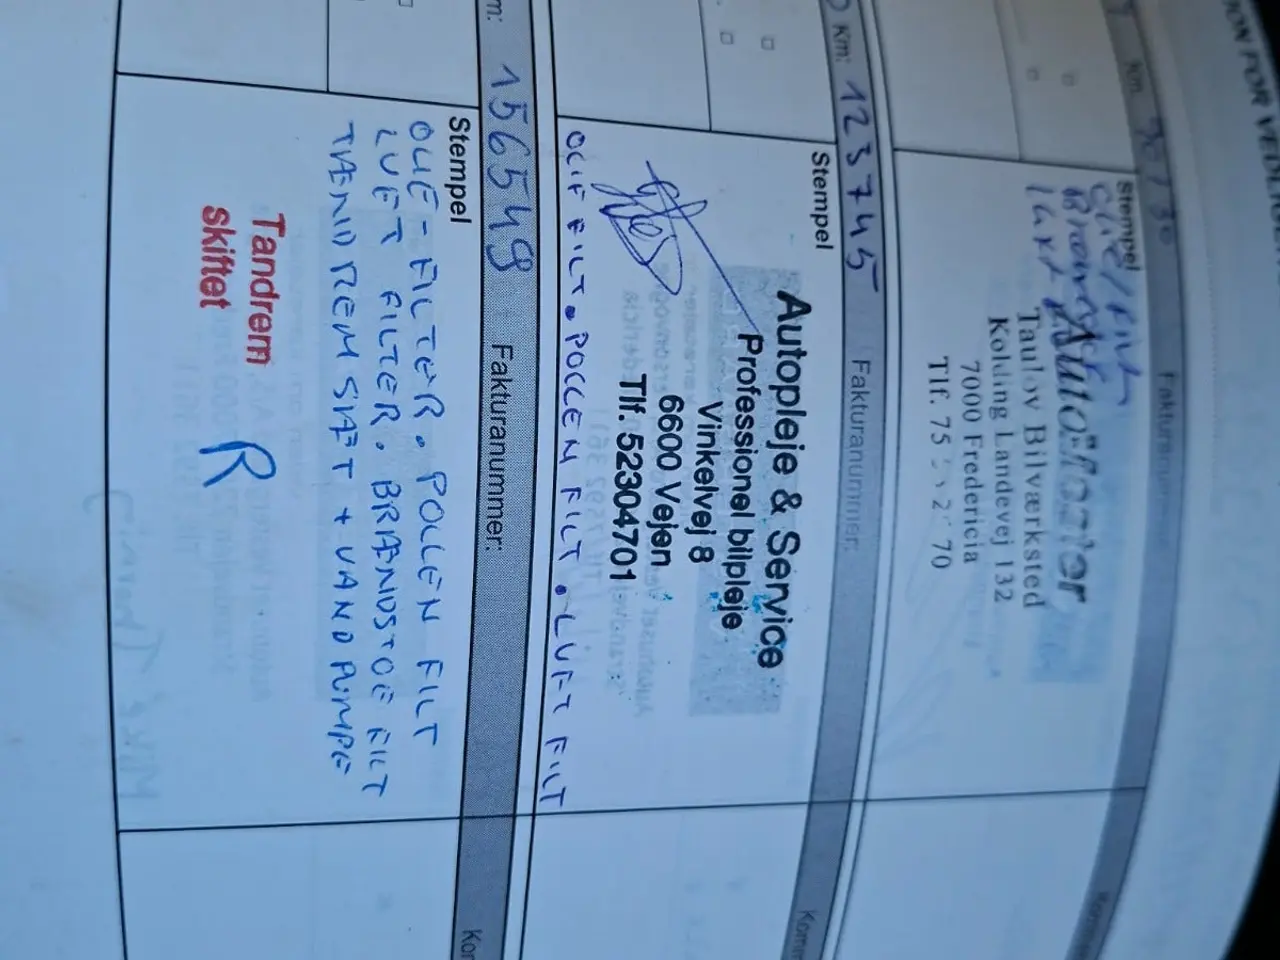 Km:
Fakturanummer
Stempel
Taulov Bilværksted
Kolding Landevej 132
7000 Fredericia
Tlf. 75 70
Km: 123745 Fakturanummer:
Stempel
Autopleje & Service
Professionel bilpleje
Vinkelvej 8
6600 Vejen
Tlf. 52304701
OLIE FILT. POLLEN FILT. LUFT FILT
156549 Fakturanummer:
Stempel
OLIE-FILTER. POLLEN FILT
LUFT FILTER. BRÆNDSTOF FILT
TAND REM SÆT + VANDPUMPE
Tandrem
skiftet